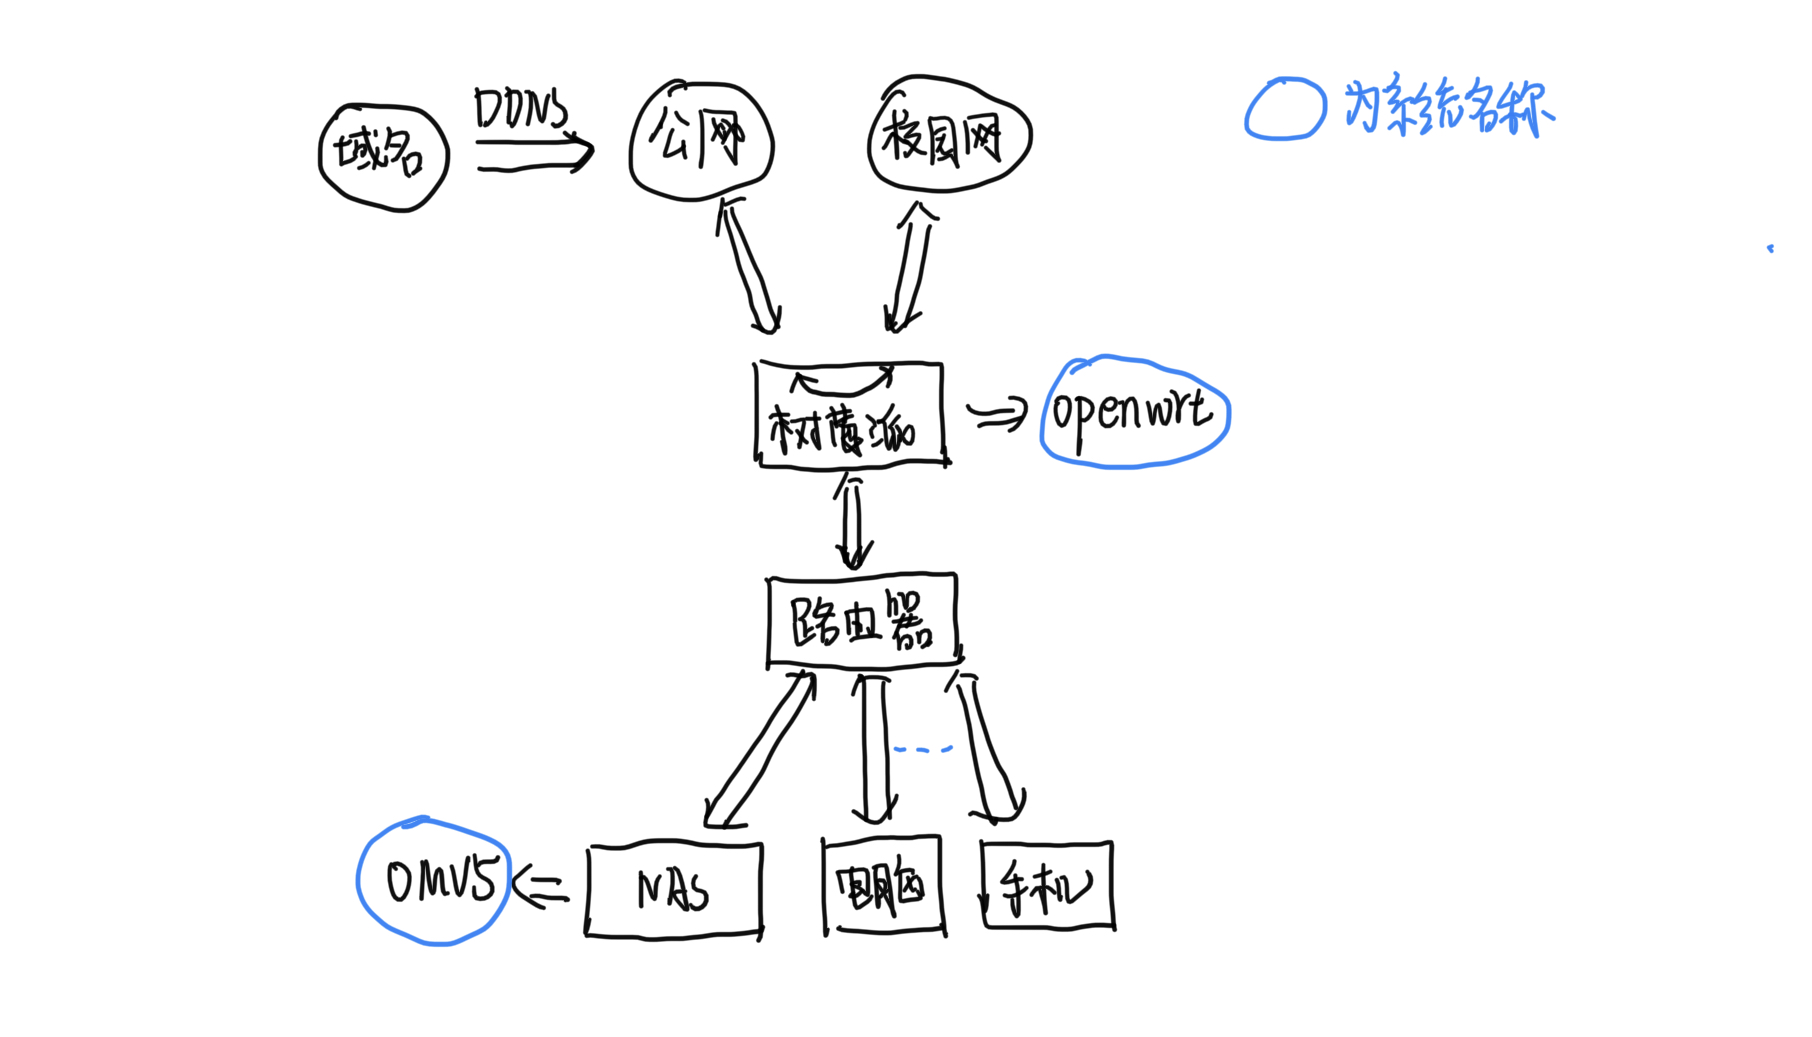 DDNS
域名
公网
校园网
为系统名称
树莓派
openwrt
路由器
OMV5
NAS
电脑
手机